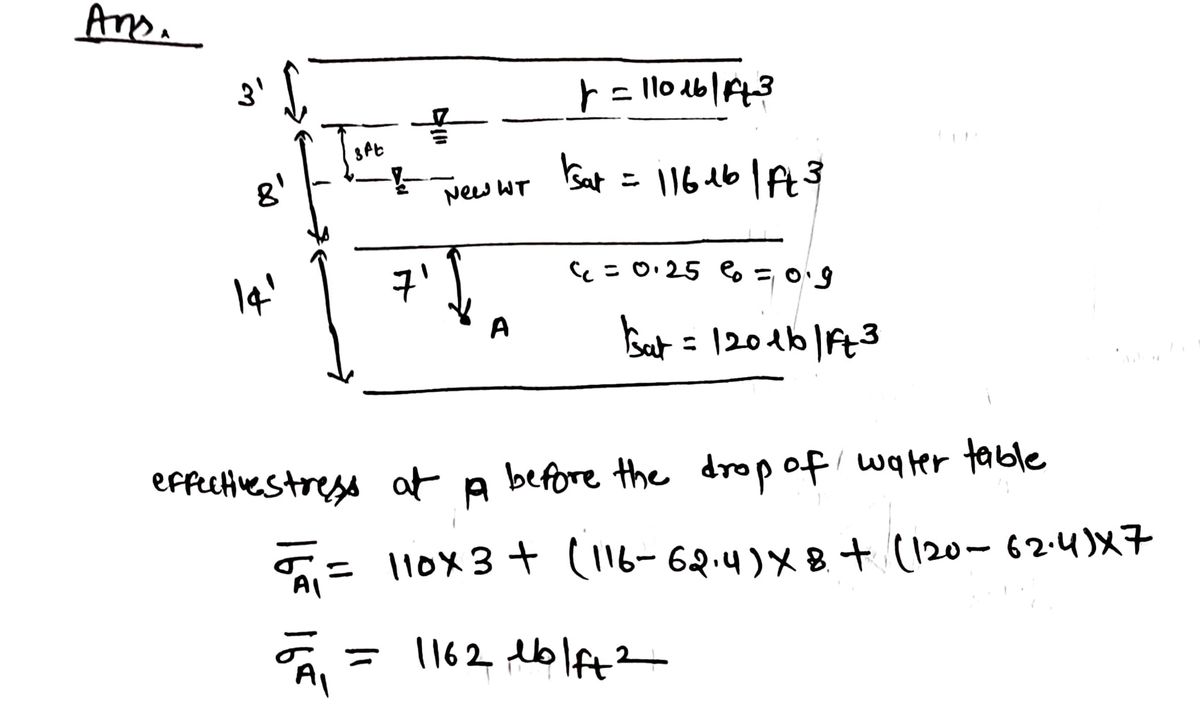 Ans.
3' r = 110 lb/ft3
3ft
8' New WT rsat = 116 lb/ft3
14' 7' Cc = 0.25 e0 = 0.9
A rsat = 120 lb/ft3
effective stress at A before the drop of water table
σ̅A1 = 110×3 + (116-62.4)×8 + (120-62.4)×7
σ̅A1 = 1162 lb/ft2